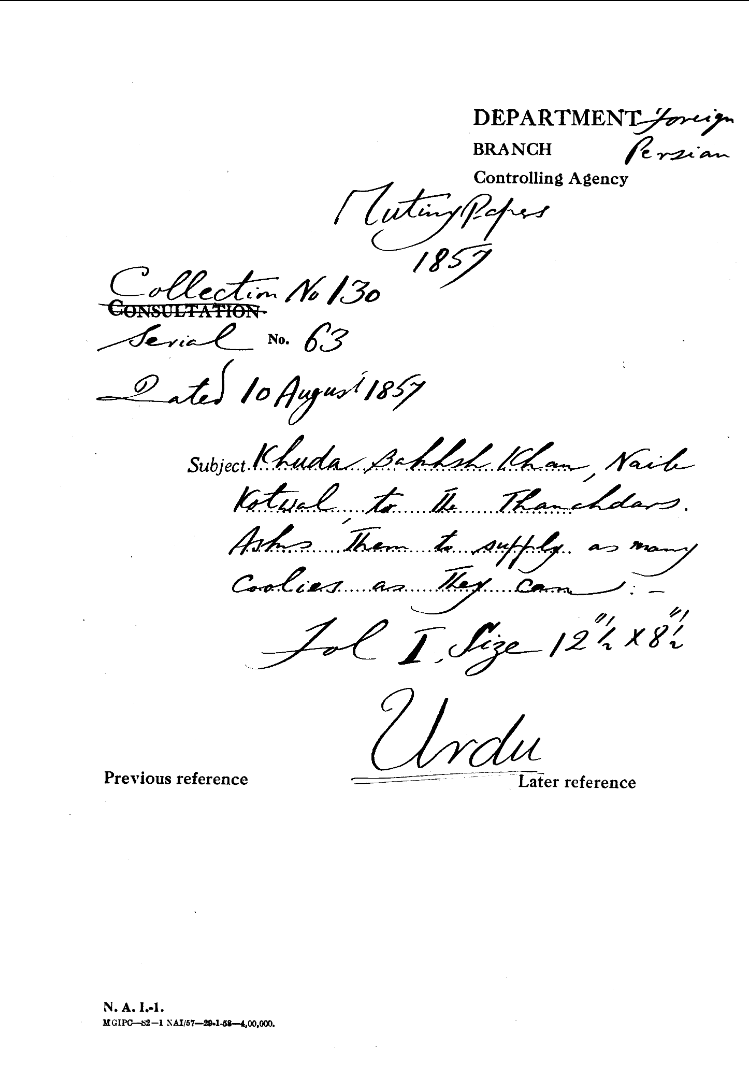 DEPARTMENT Foreign
BRANCH Persian
Controlling Agency
Mutiny Papers
1857
Collection No 130
CONSULTATION
Serial No. 63
Dated 10 August 1857
Subject. Khuda Bakhsh Khan, Naib
Kotwal, to the Thanahdars.
Asks them to supply as many
Coolies as they can :-
Fol I. Size 12"½ X 8"½
Urdu
Previous reference
Later reference
N. A. I.-1.
MGIPC—S2—1 NAI/57—29-1-58—4,00,000.